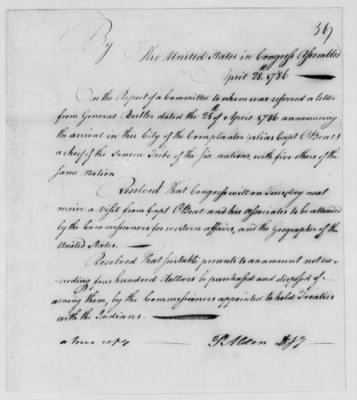 367
By The United States in Congress Assembled
April 28th 1786
On the Report of a Committee to whom was referred a letter
from General Butler dated the 28th of April 1786 announcing
the arrival in this City of the Cornplanter (alias Capt OBeal)
a chief of the Seneca Tribe of the six nations, with five others of the
same nation
Resolved That Congress will on Tuesday next
receive a visit from Capt OBeal and his associates to be attended
by the Commissioners for western affairs, and the Geographer of the
United States.
Resolved That suitable presents to an amount not ex-
ceeding four hundred dollars be purchased and disposed of
among them, by the Commissioners appointed to hold Treaties
with the Indians.
a true copy
R Alden DSy